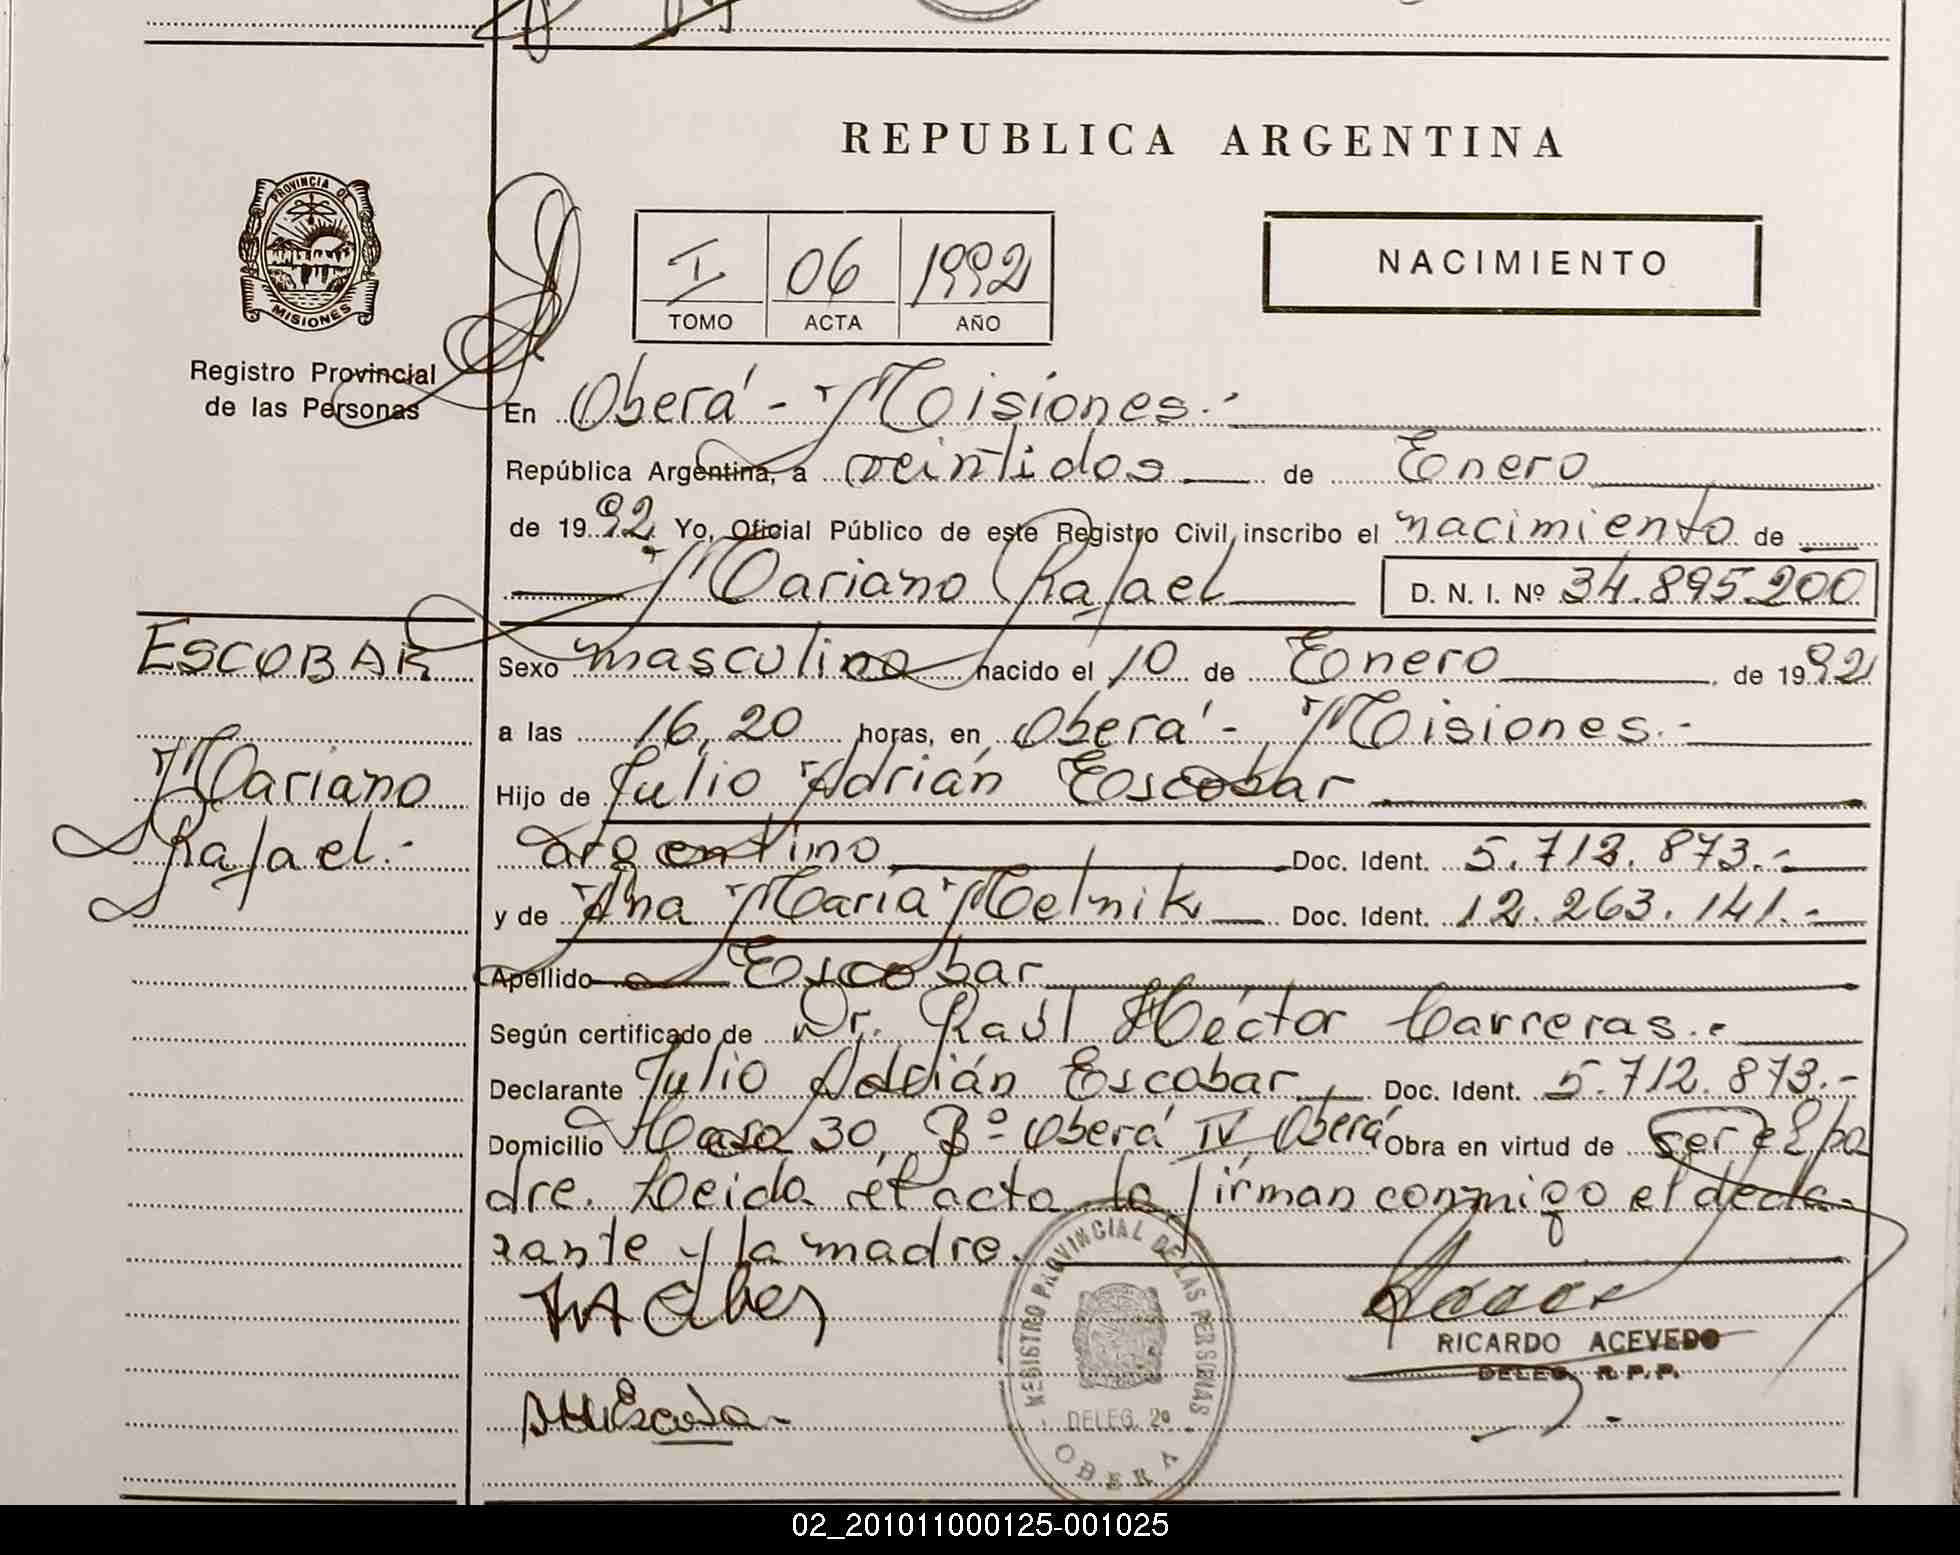 REPUBLICA ARGENTINA
PROVINCIA DE
MISIONES
Registro Provincial
de las Personas
I 06 1992
TOMO ACTA AÑO
NACIMIENTO
En Oberá - Misiones.-
República Argentina, a veintidos de Enero
de 1992 Yo, Oficial Público de este Registro Civil, inscribo el nacimiento de
Mariano Rafael D. N. I. Nº 34.895.200
ESCOBAR
Mariano
Rafael.-
Sexo masculino nacido el 10 de Enero de 1992
a las 16,20 horas, en Oberá - Misiones.-
Hijo de Julio Adrián Escobar
argentino Doc. Ident. 5.712.873.-
y de Ana María Melnik Doc. Ident. 12.263.141.-
Apellido Escobar
Según certificado de Dr. Raúl Héctor Carreras.-
Declarante Julio Adrián Escobar Doc. Ident. 5.712.873.-
Domicilio Casa 30, Bº Oberá IV Oberá Obra en virtud de ser el pa
dre. Leida el acta la firman conmigo el decla-
rante y la madre.
REGISTRO PROVINCIAL DE LAS PERSONAS
DELEG. 2º
OBERA
RICARDO ACEVEDO
DELEG. R.P.P.
02_201011000125-001025